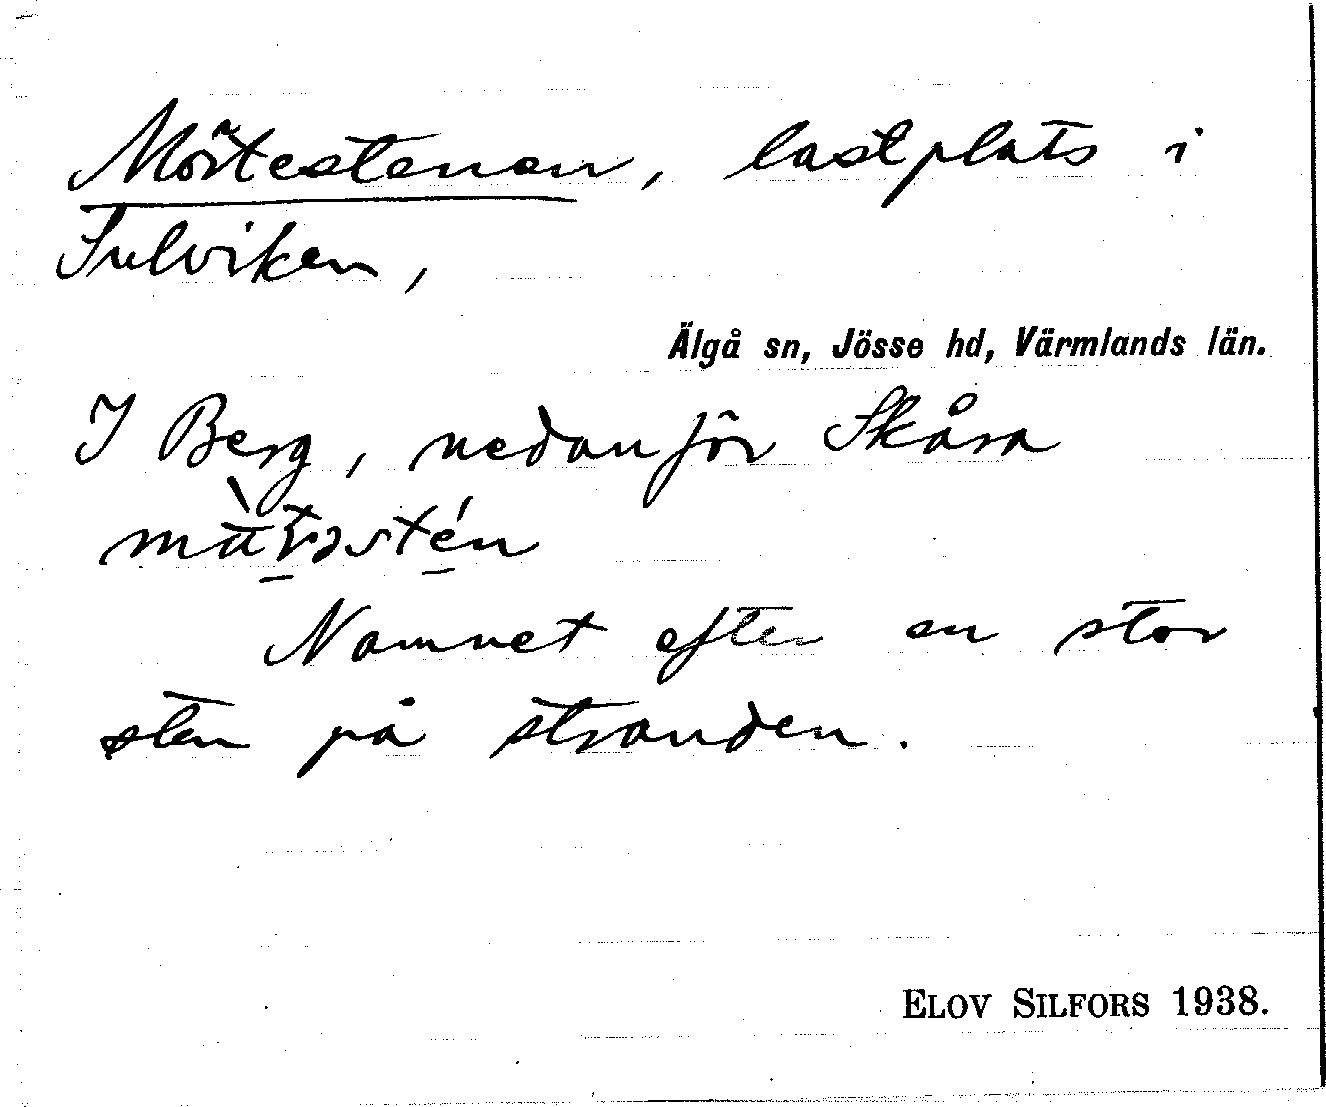 Mörtestenen, lastplats i
Fulviken,
Älgå sn, Jösse hd, Värmlands län.
I Berg, nedanför Skåra
Namnet efter en stor
sten på stranden.
ELOV SILFORS 1938.